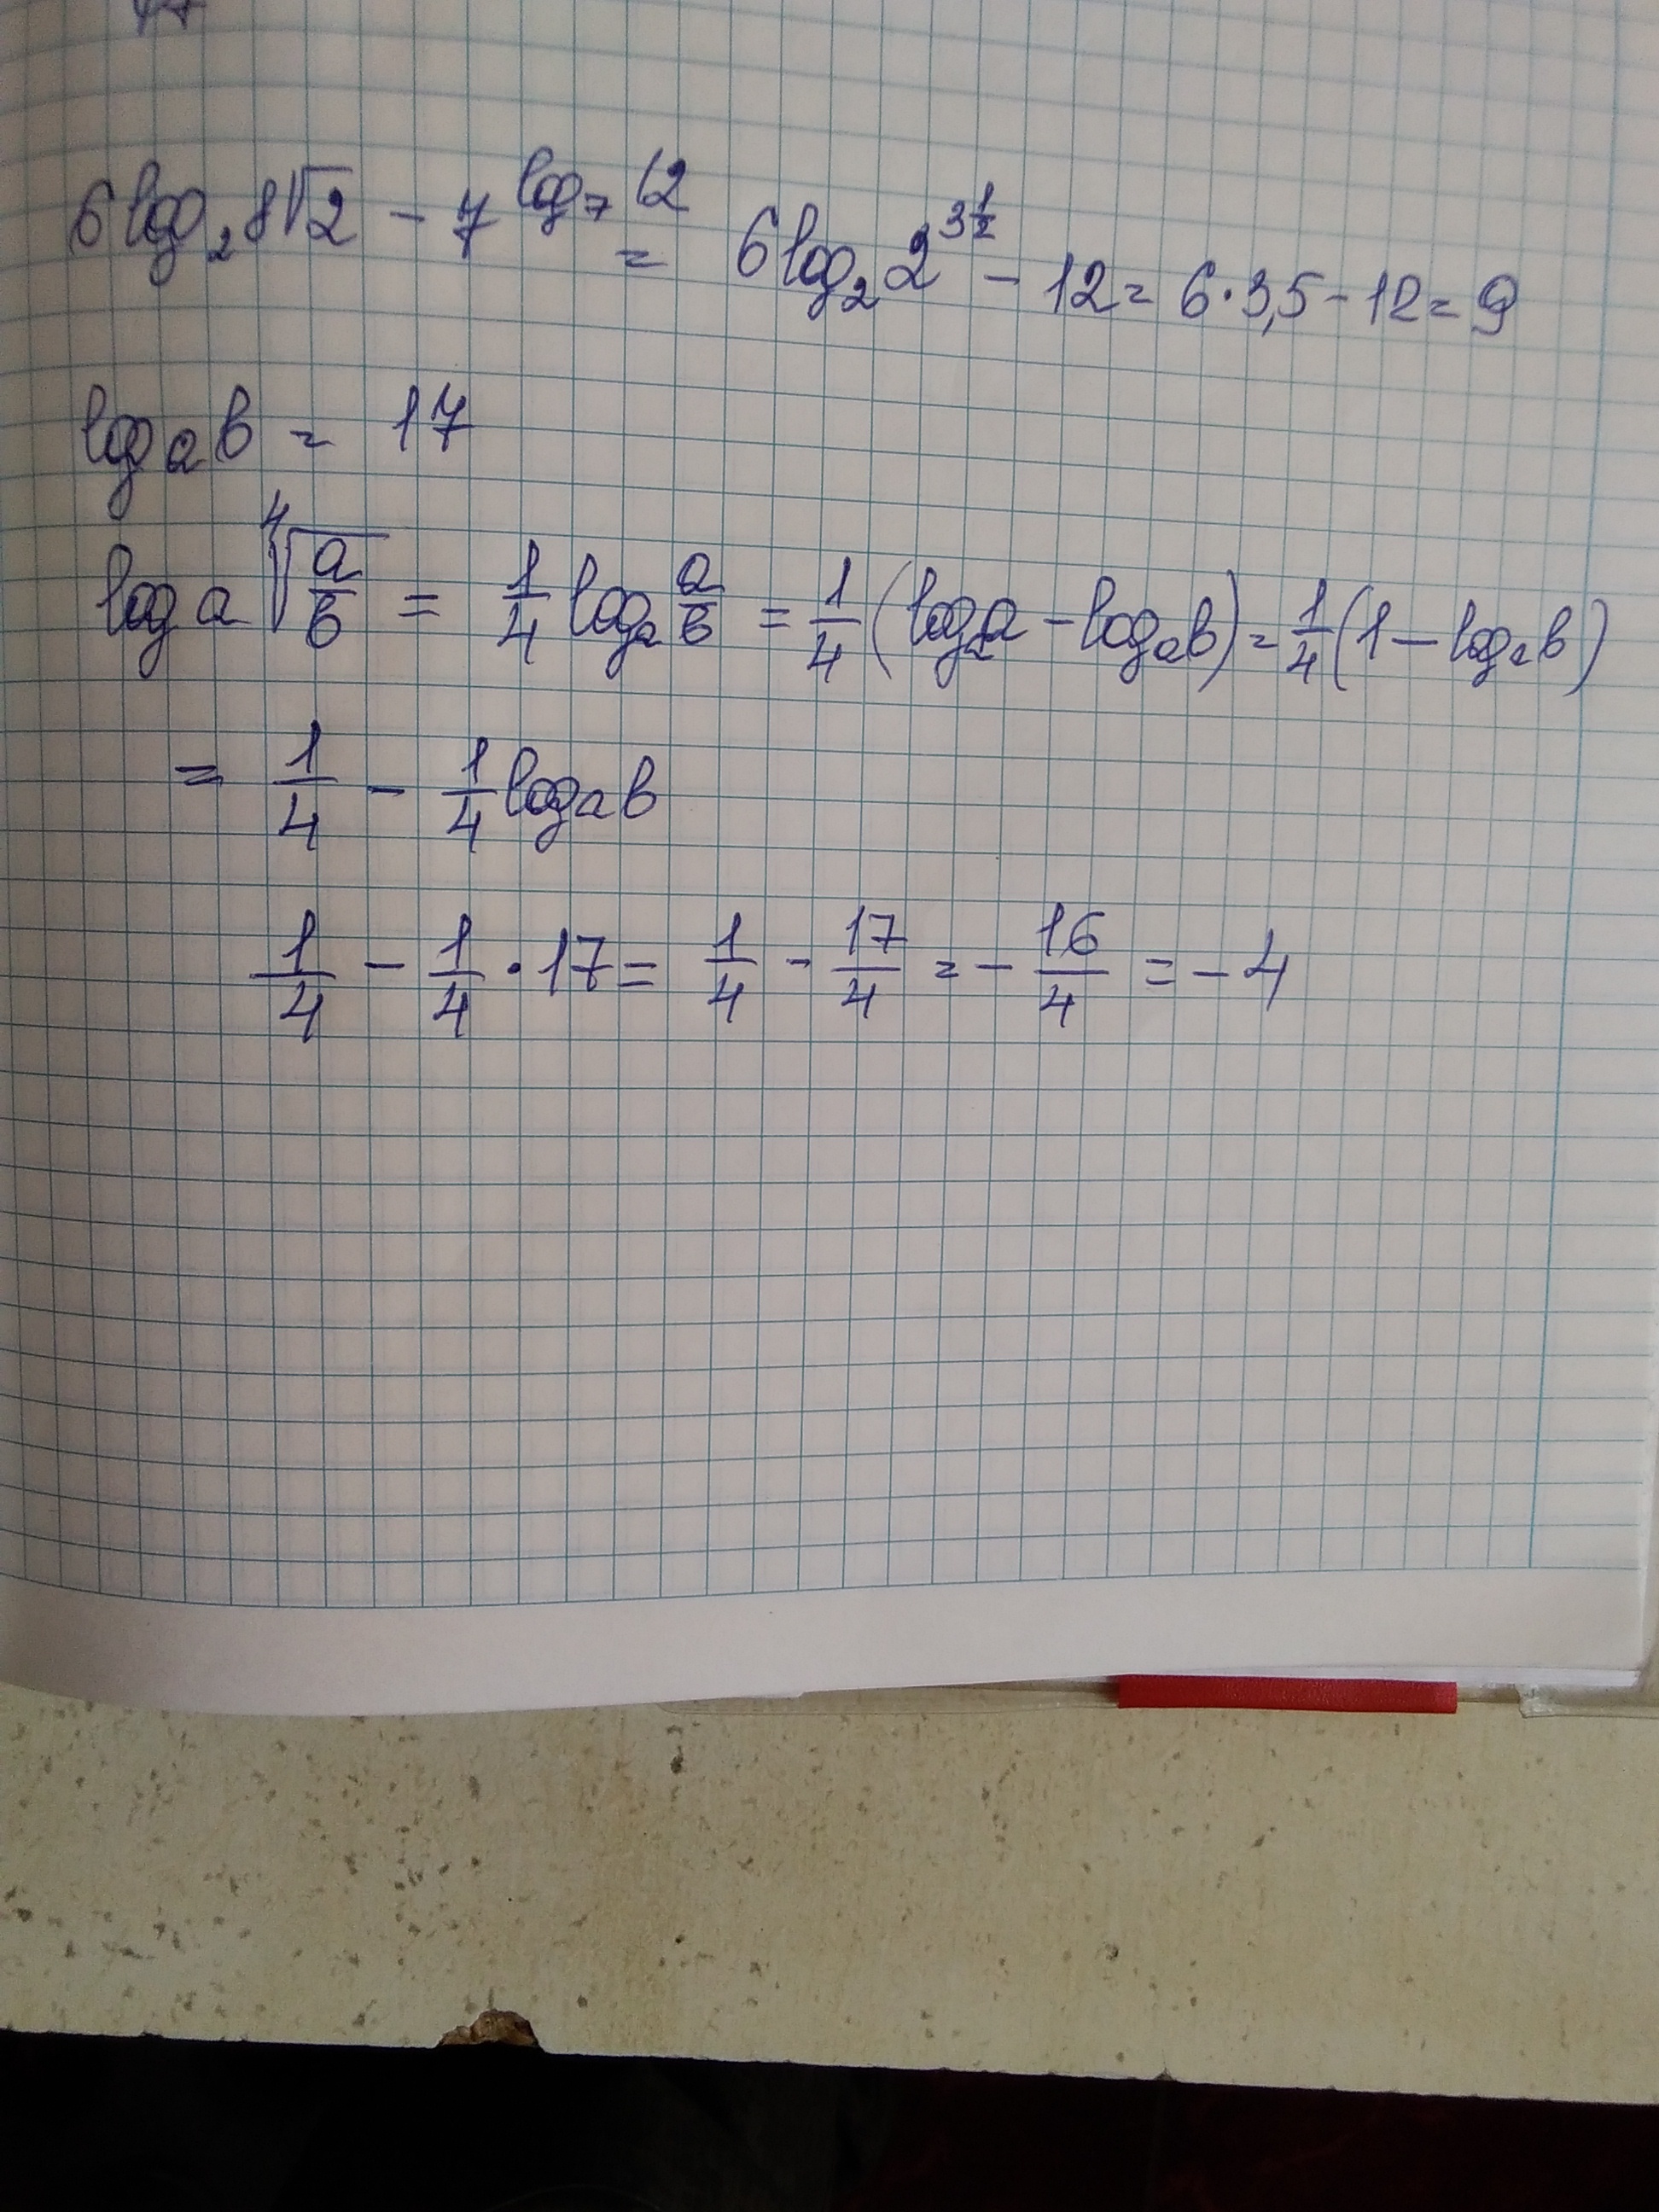 6 log₂ 8√2 − 7^(log₇ 12) = 6 log₂ 2^(3 1/2) − 12 = 6·3,5 − 12 = 9
logₐ b = 17
log a ⁴√(a/b) = 1/4 logₐ a/b = 1/4 (logₐ a − logₐ b) = 1/4 (1 − logₐ b)
= 1/4 − 1/4 logₐ b
1/4 − 1/4 · 17 = 1/4 − 17/4 = − 16/4 = −4